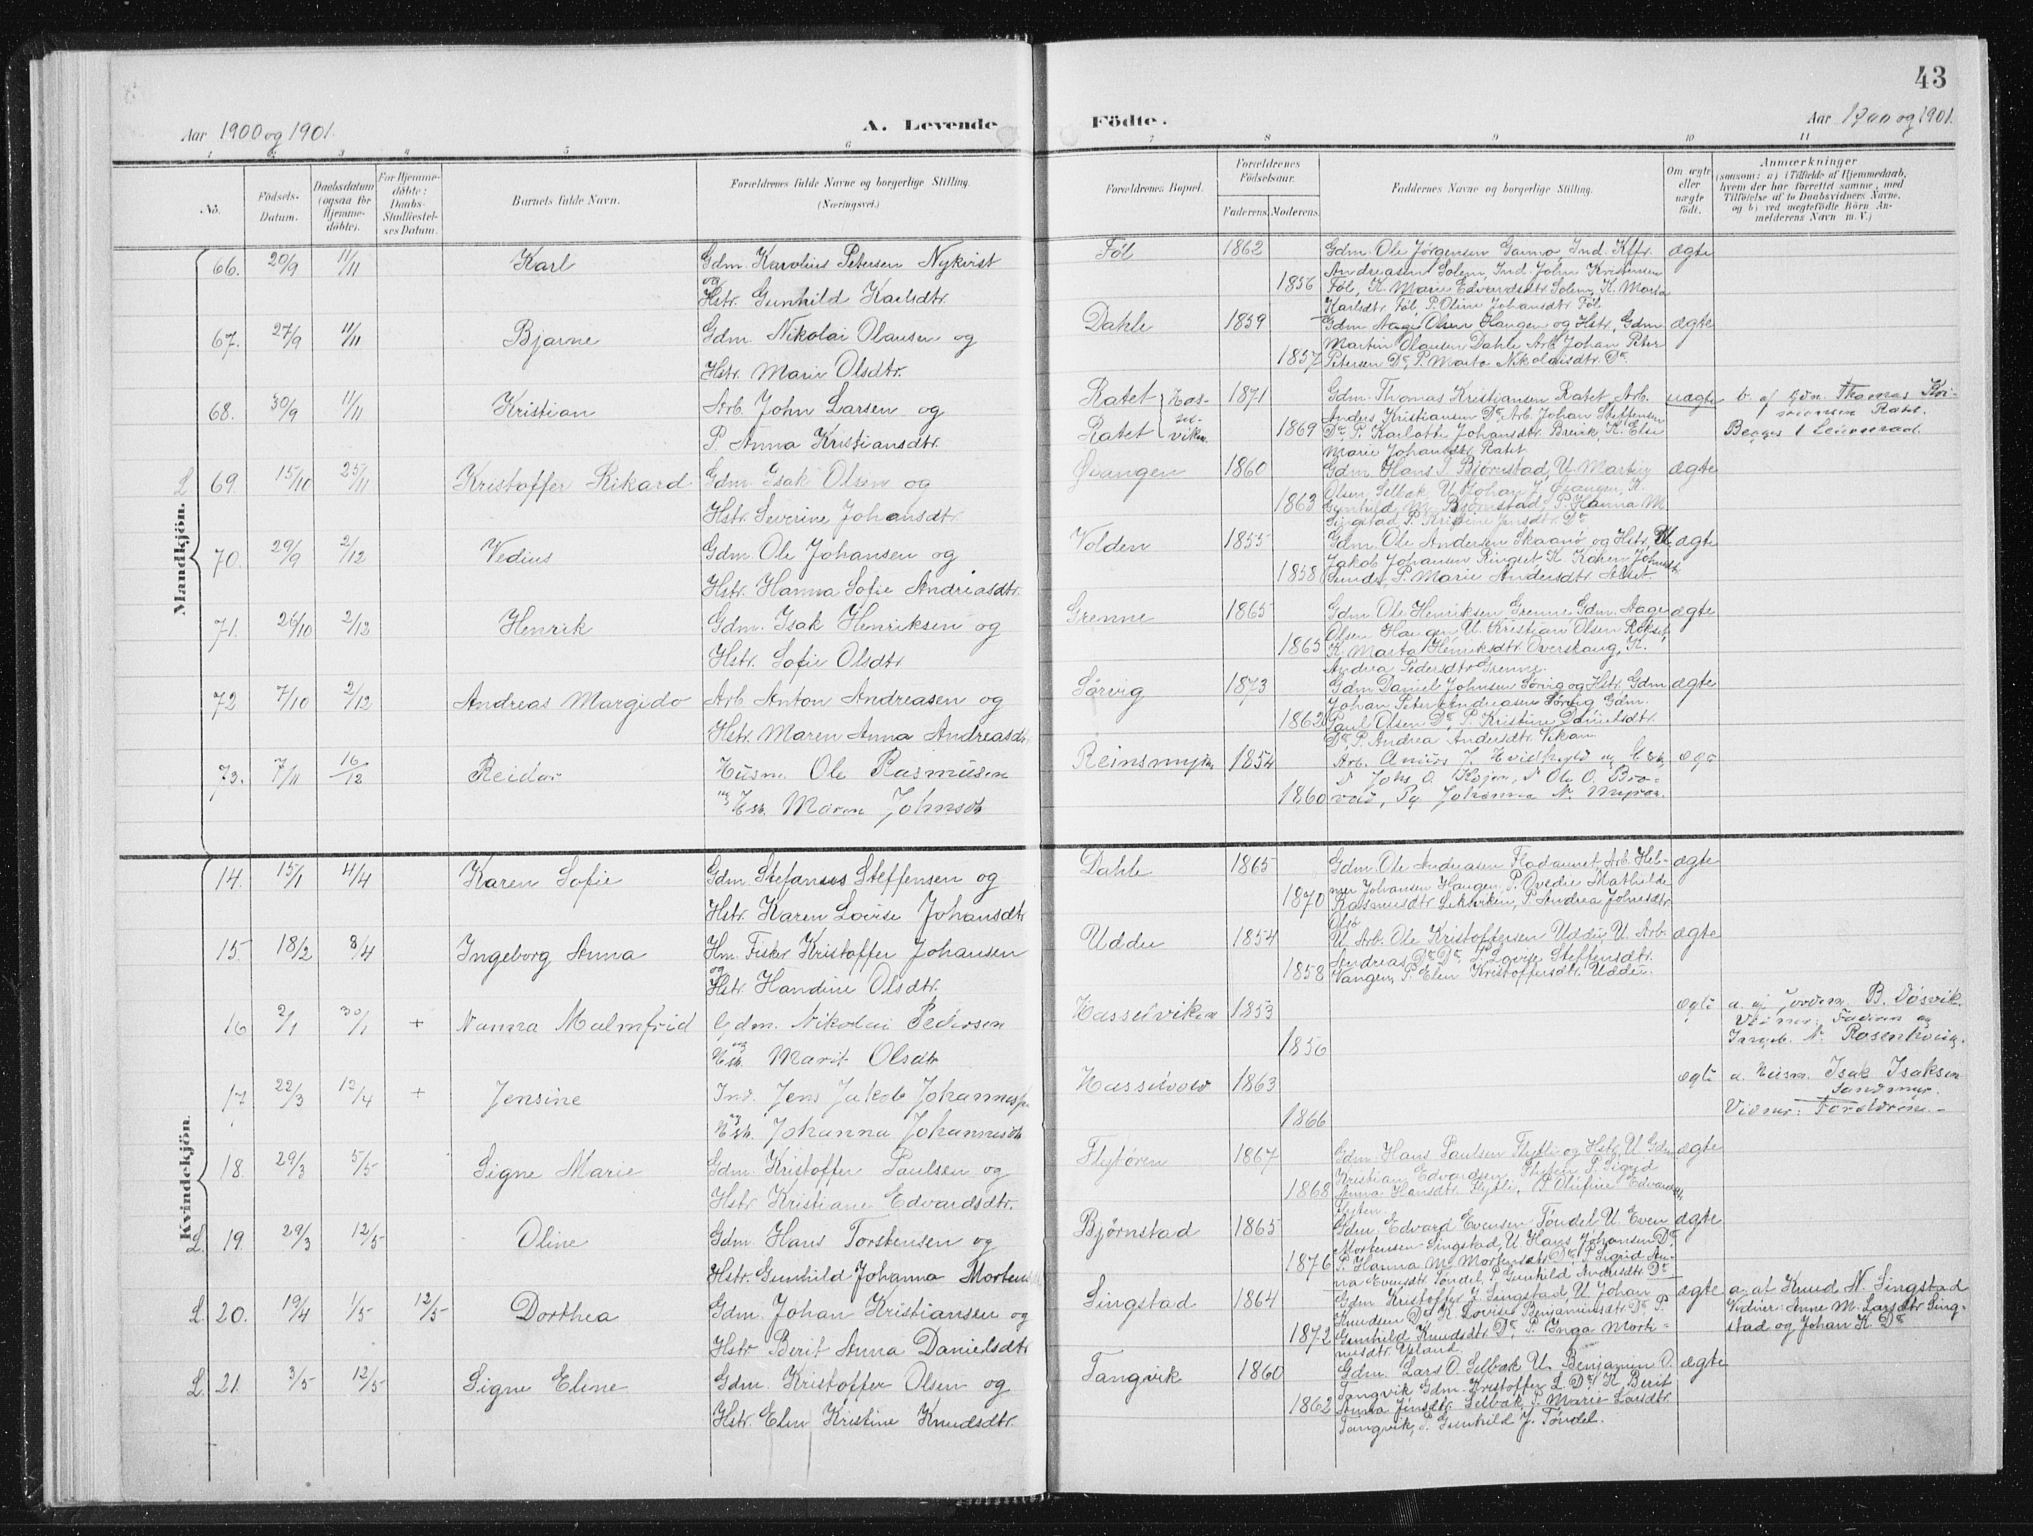 43
Aar 1900 og 1901.
A. Levende
Födte.
Aar og 1901.
1 2 3 4 5 6 7 8 9 10 11
No.
Födsels-Datum.
Daabsdatum (ogsaa for Hjemme-döbte).
For Hjemme-döbte: Daabs-Stadfæstel-ses Datum.
Barnets fulde Navn.
Forældrenes fulde Navne og borgerlige Stilling. (Næringsvei.)
Forældrenes Bopæl.
Forældrenes Födselsaar.
Faderens. Moderens.
Faddernes Navne og borgerlige Stilling.
Om ægte eller uægte födt.
Anmærkninger (saasom: a) i Tilfælde af Hjemmedaab, hvem der har forrettet samme, med Tilföielse af to Daabsvidners Navne, og b) ved uægtefödte Börn An-melderens Navn m. V.)
Mandkjön.
66. 20/9 11/11 Karl Gdm. Karolius Petersen Nykvist Føl 1862 Gdm. Ole Jørgensen Ind. Kftr. ægte
og Hstr. Gunhild Karlsdtr. 1856 Andreasen Solem, Ind. John Kristensen
Føl, K. Marie Edvardsdtr. Solem, K. Marta
Karlsdtr. Føl, P. Oline Johansdtr. Føl.
67. 27/9 11/11 Bjarne Gdm. Nikolai Olausen og Dahle 1859 Gdm. Aage Olsen Haugen og Hstr., Gdm. ægte
Hstr. Marie Olsdtr. 1857 Martin Olausen Dahle Arb. Johan Peter
Petersen Do, P. Marta Nikolaisdtr. Do
68. 30/9 11/11 Kristian Arb. John Larsen og Ratet 1871 Gdm. Thomas Kristiansen Ratet, Arb. uægte b. af Gdm. Thomas
P. Anna Kristiansdtr. Ratet 1869 Anders Kristiansen Do, Arb. Johan Steffensen
Do, P. Karlotte Johansdtr. Brevik, K. Else
Marie Johansdtr. Ratet
L 69. 15/10 25/11 Kristoffer Rikard Gdm. Isak Olsen og Øvangen 1860 Gdm. Hans J. Bjørnstad, U. Martin ægte
Hstr. Severine Johansdtr. 1863 Olsen Selbæk, U. Johan J. Øvangen, K.
Gunhild M. Bjørnstad, P. Hanna M.
Singstad, P. Kristine Jensdtr. Do
70. 29/9 2/12 Vedius Gdm. Ole Johansen og Volden 1855 Gdm. Ole Andersen Skaanø og Hstr. U. ægte
Hstr. Hanna Sofie Andreasdtr. 1858 Jakob Johansen Ringset K. Karen
P. Marie Andersdtr.
71. 26/10 2/12 Henrik Gdm. Isak Henriksen og Grenne 1865 Gdm. Ole Henriksen Grenne, Gdm. Aage ægte
Hstr. Sofie Olsdtr 1865 Olsen Haugen, U. Kristian Olsen
K. Marta Henriksdtr. Overskaug, K.
Andrea Pedersdtr. Grenne.
72. 7/10 2/12 Andreas Margido Arb. Anton Andreasen og Sørvig 1873 Gdm. Daniel Johnsen Sørvig og Hstr. Gdm. ægte
Hstr. Maren Anna Andreasdtr. 1862 Johan Peter Andreasen Sørvig Gdm.
Paul Olsen Do, P. Kristine Danielsdtr.
Do, P. Andrea Andersdtr. Vikan
73. 7/11 16/12 Reidar Husm. Ole Rasmusen Reinsmyren 1854
og Hstr. Maren Johnsdtr 1860
Kvindekjön.
14. 15/1 4/4 Karen Sofie Gdm. Stefanus Steffensen og Dahle 1865 Gdm. Ole Andreasen Arb. Hel- ægte
Hstr. Karen Lovise Johansdtr 1870 mer Johansen Haugen, P. Ovedie Mathilde
Rasmusdtr. P. Andrea Johnsdtr.
15. 18/2 8/4 Ingeborg Anna Hm. Fisker Kristoffer Johansen Uddu 1854 U. Arb. Ole Kristoffersen Uddu, U. Arb. ægte
og Hstr. Handine Olsdtr. 1858 Andreas Do Do, P. Lovise Steffensdtr.
Vangen, P. Elen Kristoffersdtr. Uddu.
16 2/1 30/1 + Nanna Malmfrid Gdm. Nikolai Pedersen Hasselviken 1853 ægte a. af Jordm. B. Døsvik
og Hstr. Marit Olsdtr 1856 Vidner: Faderen og
Ingeb. N. Rosenkvig.
17 22/3 12/4 + Jensine Ind. Jens Jakob Johannesen Hasselvold 1863 ægte a. Husm. Isak Isaksen
og Hstr. Johanna Johannesdtr 1866 Sandmyr.
Vidner: Forældrene.
18. 29/3 5/5 Signe Marie Gdm. Kristoffer Paulsen og Flytøren 1867 Gdm. Hans Paulsen Flytli og Hstr., U. Gdm. ægte
Hstr. Kristiane Edvardsdtr. 1868 Kristian Edvardsen P. Sigrid
Anna Hansdtr. Flytli, P. Olufine Edvardsdtr.
L. 19. 29/3 12/5 Oline Gdm. Hans Torstensen og Bjørnstad 1865 Gdm. Edvard Evensen Tøndel U. Even ægte
Hstr. Gunhild Johanna Mortensd 1876 Mortensen Singstad, U. Hans Johansen Do
P. Hanna M. Mortensdtr. Do, P. Sigrid An-
na Evensdtr. Tøndel, P. Gunhild Andersdtr. Do
L. 20. 19/4 1/5 12/5 Dorthea Gdm. Johan Kristiansen og Singstad 1864 Gdm. Kristoffer J. Singstad, U. Johan ægte a. af Knud N. Singstad
Hstr. Berit Anna Danielsdtr 1872 Knudsen Do K. Lovise Benjaminsdtr. Do P. Vidner: Anne M. Larsdtr. Sing-
Gunhild Knudsdtr. Do, P. Inga Morti- stad og Johan K. Do
nusdtr.
L. 21. 3/5 12/5 Signe Eline Gdm. Kristoffer Olsen og Tangvik 1860 Gdm. Lars O. Selbæk U. Benjamin O. ægte
Hstr. Elen Kristine Knudsdtr. 1862 Tangvik Gdm. Kristoffer L. Do, K. Berit
Anna Jensdtr. Selbæk, P. Marie Larsdtr.
Tangvik, P. Gunhild J. Tøndel.